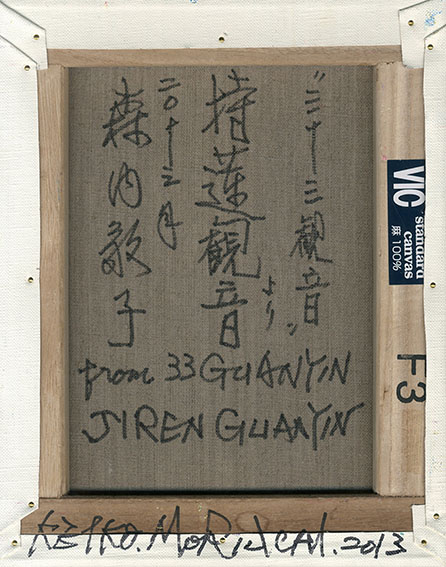 “三十三観音より”
持蓮観音
二〇十三年
森内敬子
from 33 GUANYIN
JYREN GUANYIN
KEIKO. MORIUCHI. 2013
VIC
standard
canvas
麻100%
F3